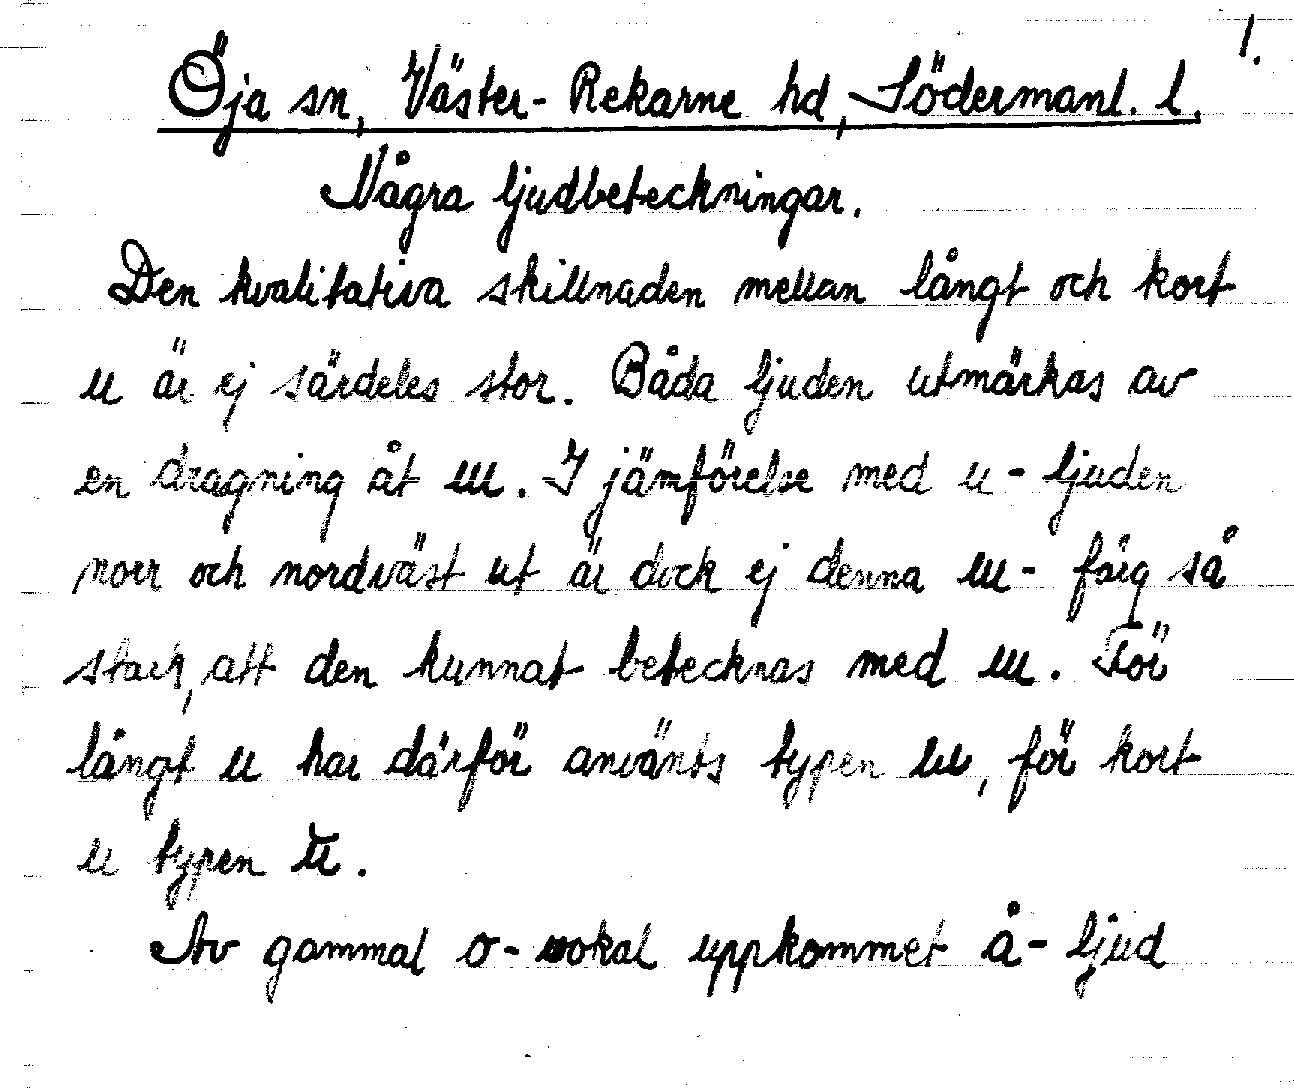 1.
Öja sn, Väster-Rekarne hd, Södermanl. l.
Några ljudbeteckningar.
Den kvalitativa skillnaden mellan långt och kort
u är ej särdeles stor. Båda ljuden utmärkas av
en dragning åt ɯ. I jämförelse med u-ljuden
norr och nordväst ut är dock ej denna ɯ-färg så
stark, att den kunnat betecknas med ɯ. För
långt u har därför använts typen , för kort
u typen .
Av gammal o-vokal uppkommet å-ljud